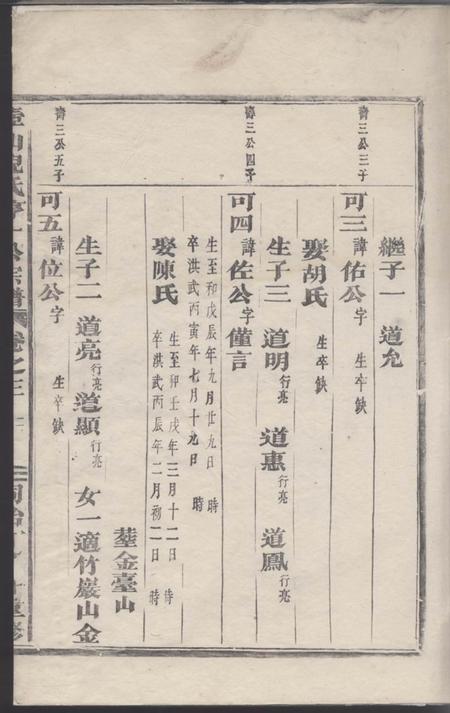 繼子一 道允
壽三公三子
可三諱佑公字 生卒缺
娶胡氏 生卒缺
生子三 道明行亮 道惠行亮 道鳳行亮
壽三公四子
可四諱佐公字僅言
生至和戊辰年九月廿九日 時
卒洪武丙寅年七月十九日 時
娶陳氏 生至和壬戌年三月十二日 時
卒洪武丙辰年二月初二日 時
葬金臺山
生子二 道亮行亮 道顯行亮 女一適竹巖山金
壽三公五子
可五諱位公字 生卒缺
氏 公宗譜 卷之三